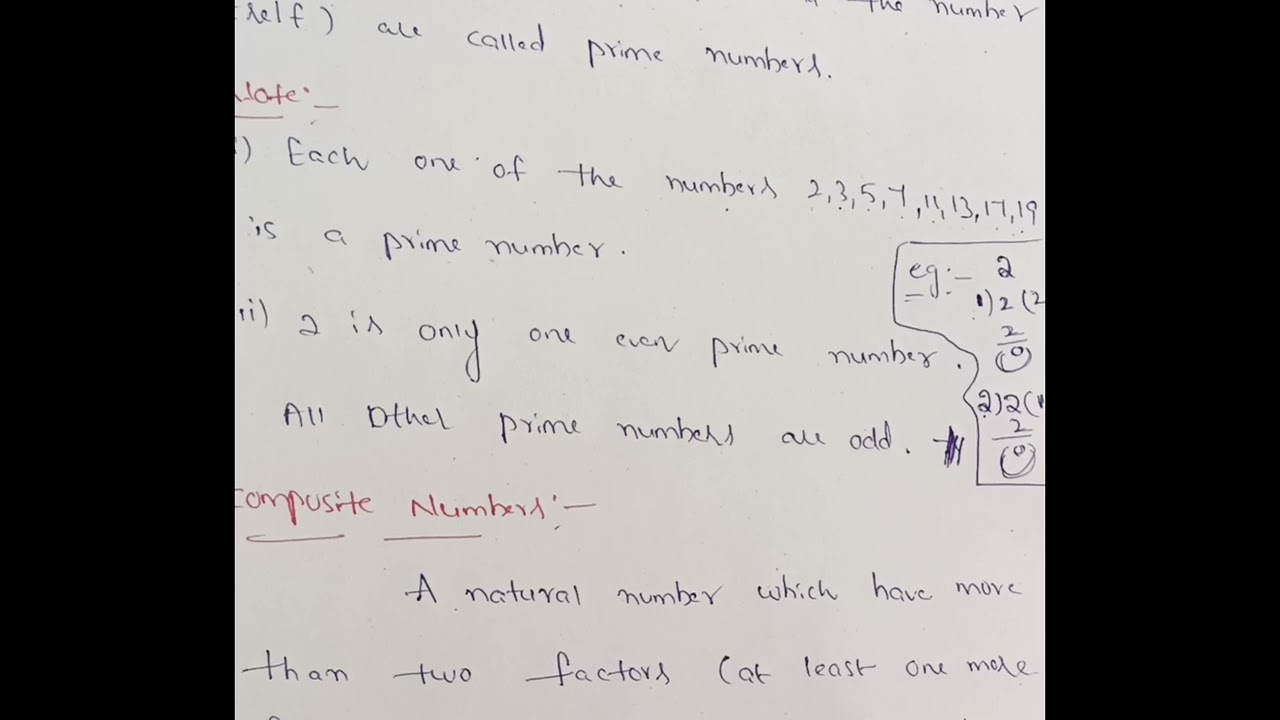 the number
self) are called prime numbers.
Note:-
i) Each one of the numbers 2,3,5,7,11,13,17,19
is a prime number.
eg:- 2
1)2(2
2
(0)
ii) 2 is only one even prime number.
2)2(1
2
(0)
All Other prime numbers are odd.
Composite Numbers:-
A natural number which have more
than two factors (at least one more